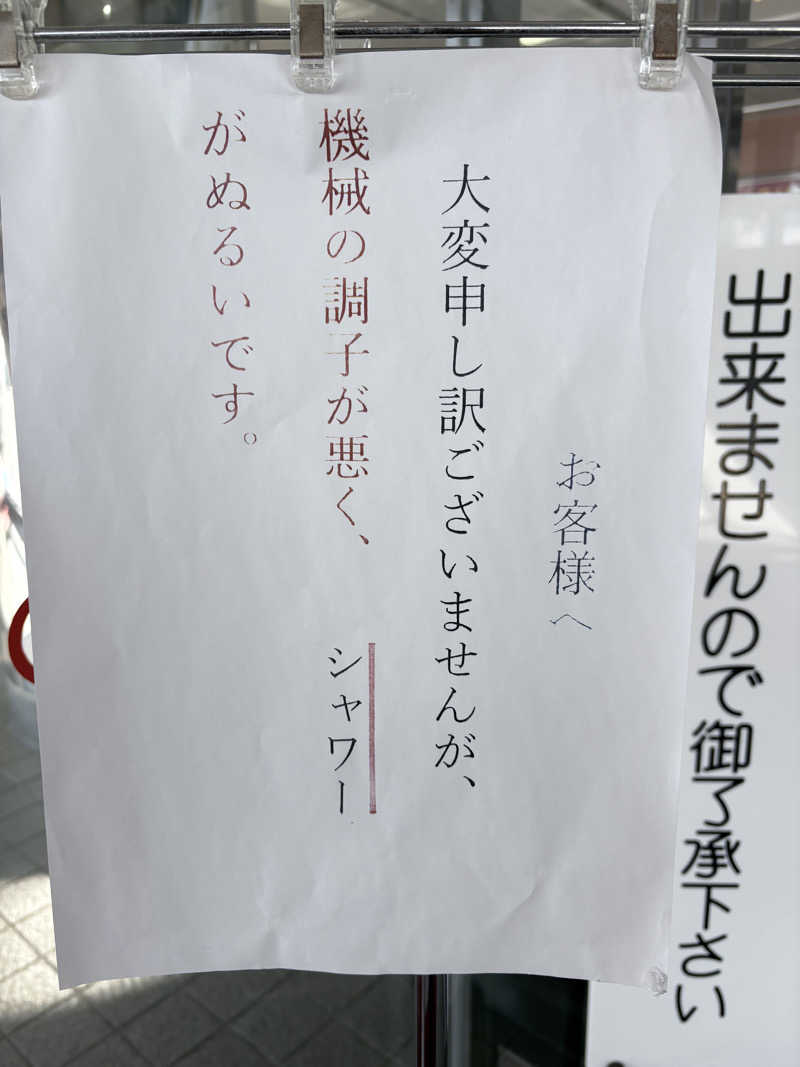 お客様へ
大変申し訳ございませんが、
機械の調子が悪く、 シャワー
がぬるいです。
出来ませんので御了承下さい